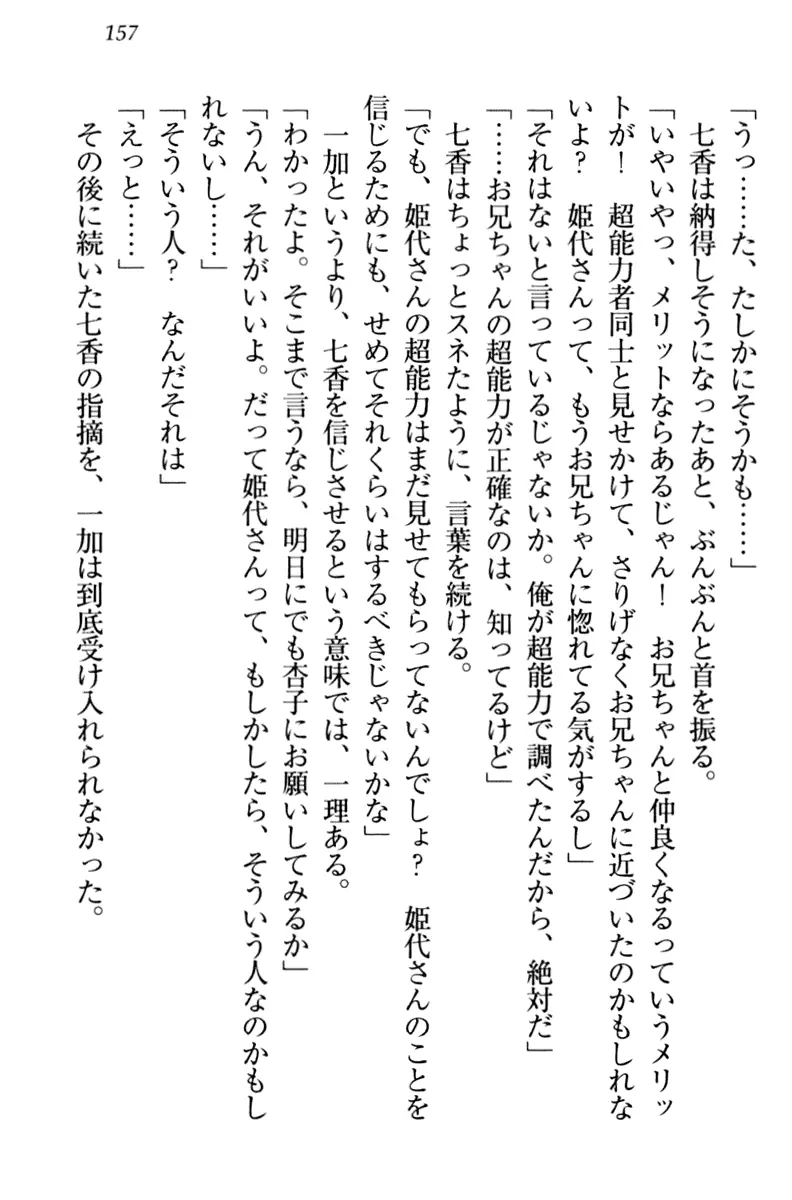 157
「うっ……た、たしかにそうかも……」
七香は納得しそうになったあと、ぶんぶんと首を振る。
「いやいやっ、メリットならあるじゃん！　お兄ちゃんと仲良くなるっていうメリッ
トが！　超能力者同士と見せかけて、さりげなくお兄ちゃんに近づいたのかもしれな
いよ？　姫代さんって、もうお兄ちゃんに惚れてる気がするし」
「それはないと言っているじゃないか。俺が超能力で調べたんだから、絶対だ」
「……お兄ちゃんの超能力が正確なのは、知ってるけど」
七香はちょっとスネたように、言葉を続ける。
「でも、姫代さんの超能力はまだ見せてもらってないんでしょ？　姫代さんのことを
信じるためにも、せめてそれくらいはするべきじゃないかな」
一加というより、七香を信じさせるという意味では、一理ある。
「わかったよ。そこまで言うなら、明日にでも杏子にお願いしてみるか」
「うん、それがいいよ。だって姫代さんって、もしかしたら、そういう人なのかもし
れないし……」
「そういう人？　なんだそれは」
「えっと……」
その後に続いた七香の指摘を、一加は到底受け入れられなかった。